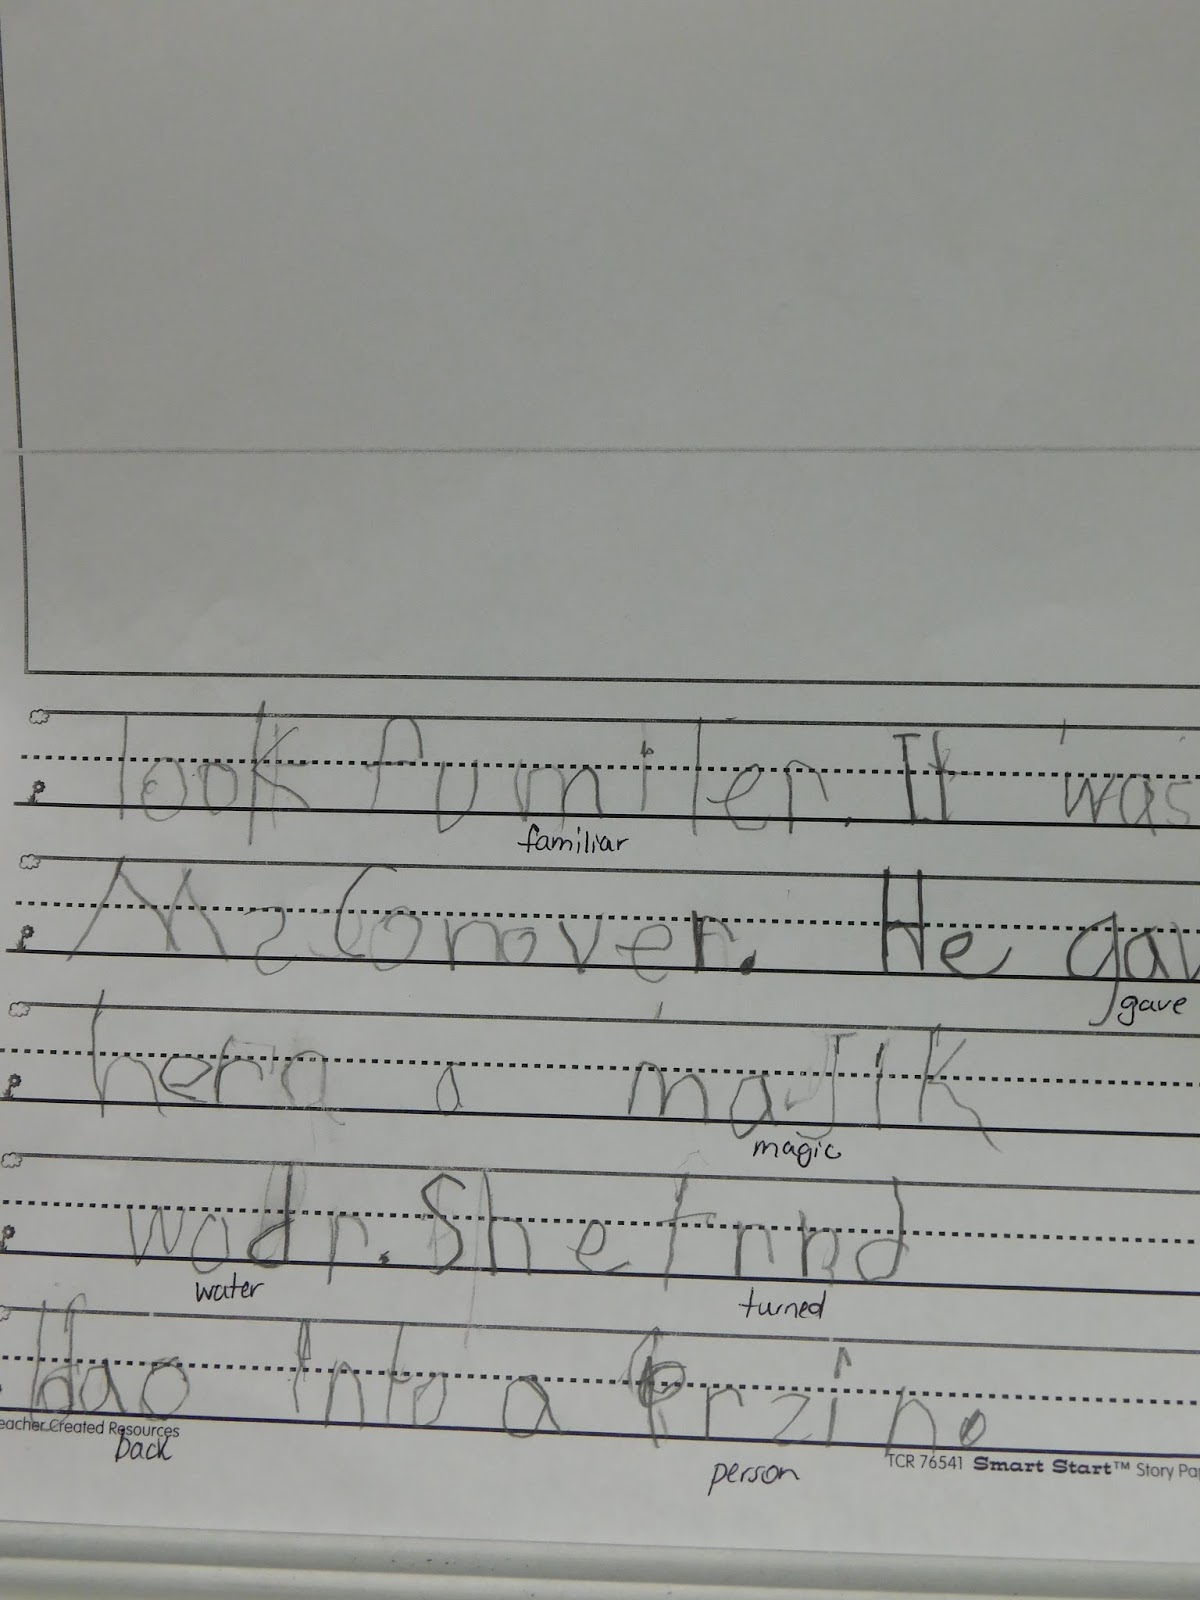 look fumiler. It was
familiar
Mz Conover. He gav
gave
her a majik
magic
wadr. She trnd
water turned
bac into a przin.
eacher Created Resources
back
person
TCR 76541 Smart Start™ Story Pap